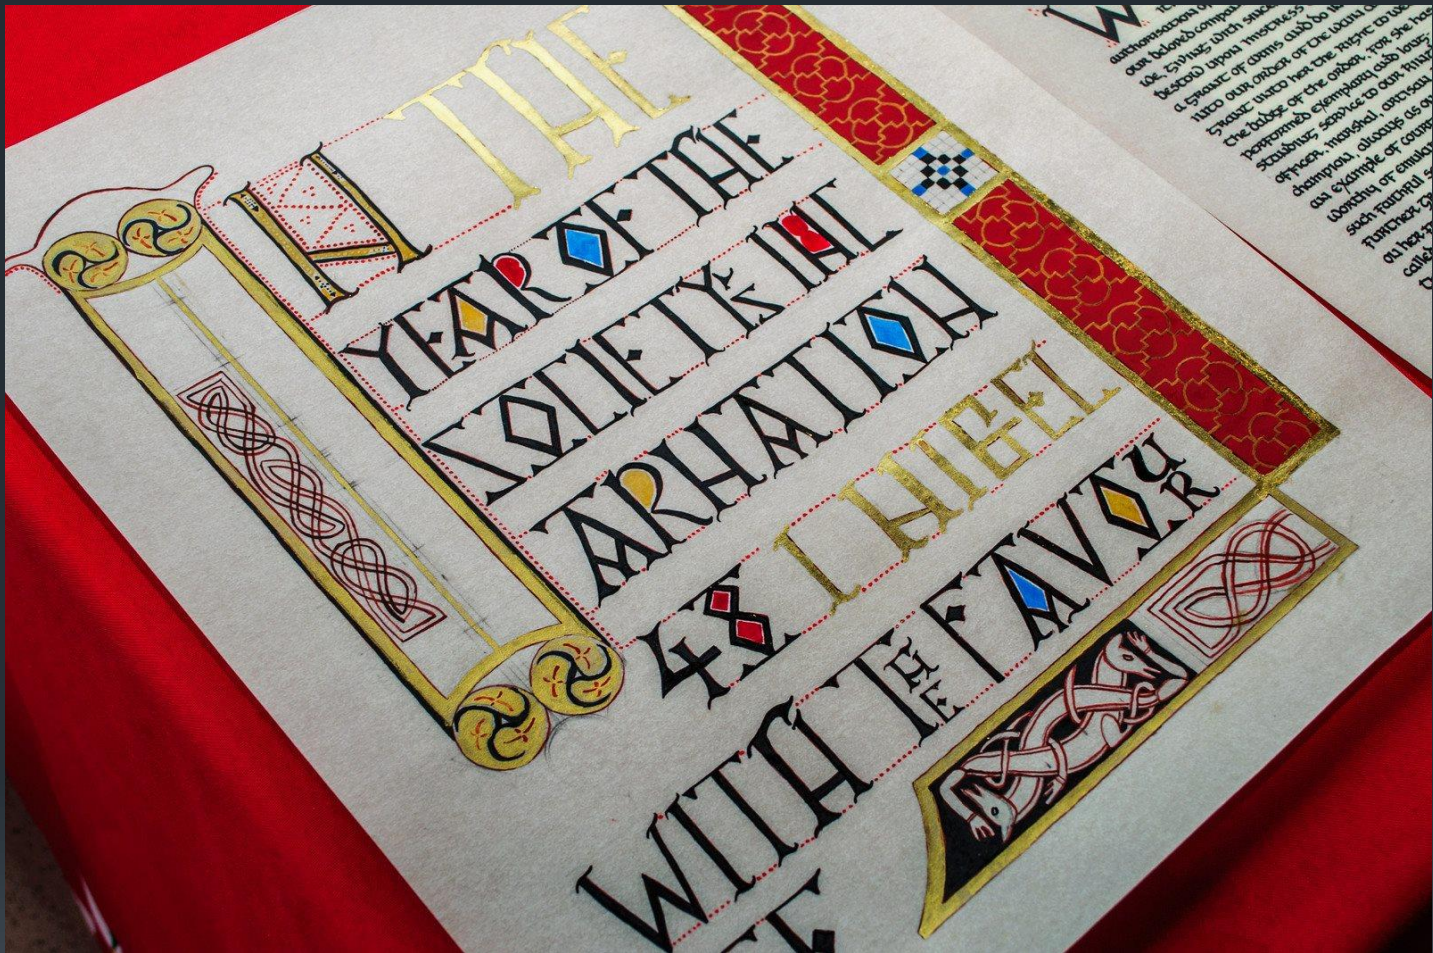 IN THE
YEAR OF THE
SOCIETYS INC
ARNATION
48 I NIGEL
WITH THE FAVOUR
authorisation of
our beloved
we giving with
bestow upon
a grant of arms and do
into our order of the
grant unto her the right to
the badge of the order, for she has
performed exemplary and long
standing service to our
officer, marshal, artisan
champion, always as
an example of
worthy of
such faithful
further